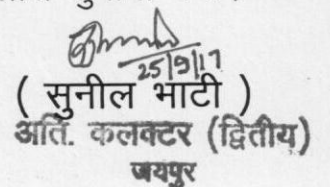 25/9/17
( सुनील भाटी )
अति. कलक्टर (द्वितीय)
जयपुर